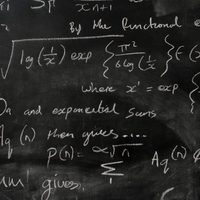 x n+1
By the functional e
√ log(1/x) exp { π² / 6 log(1/x) } E (x
where x' = exp
and exponential sums
Aq(n) then gives....
P(n) = ∝√n Σ Aq(n)
gives.